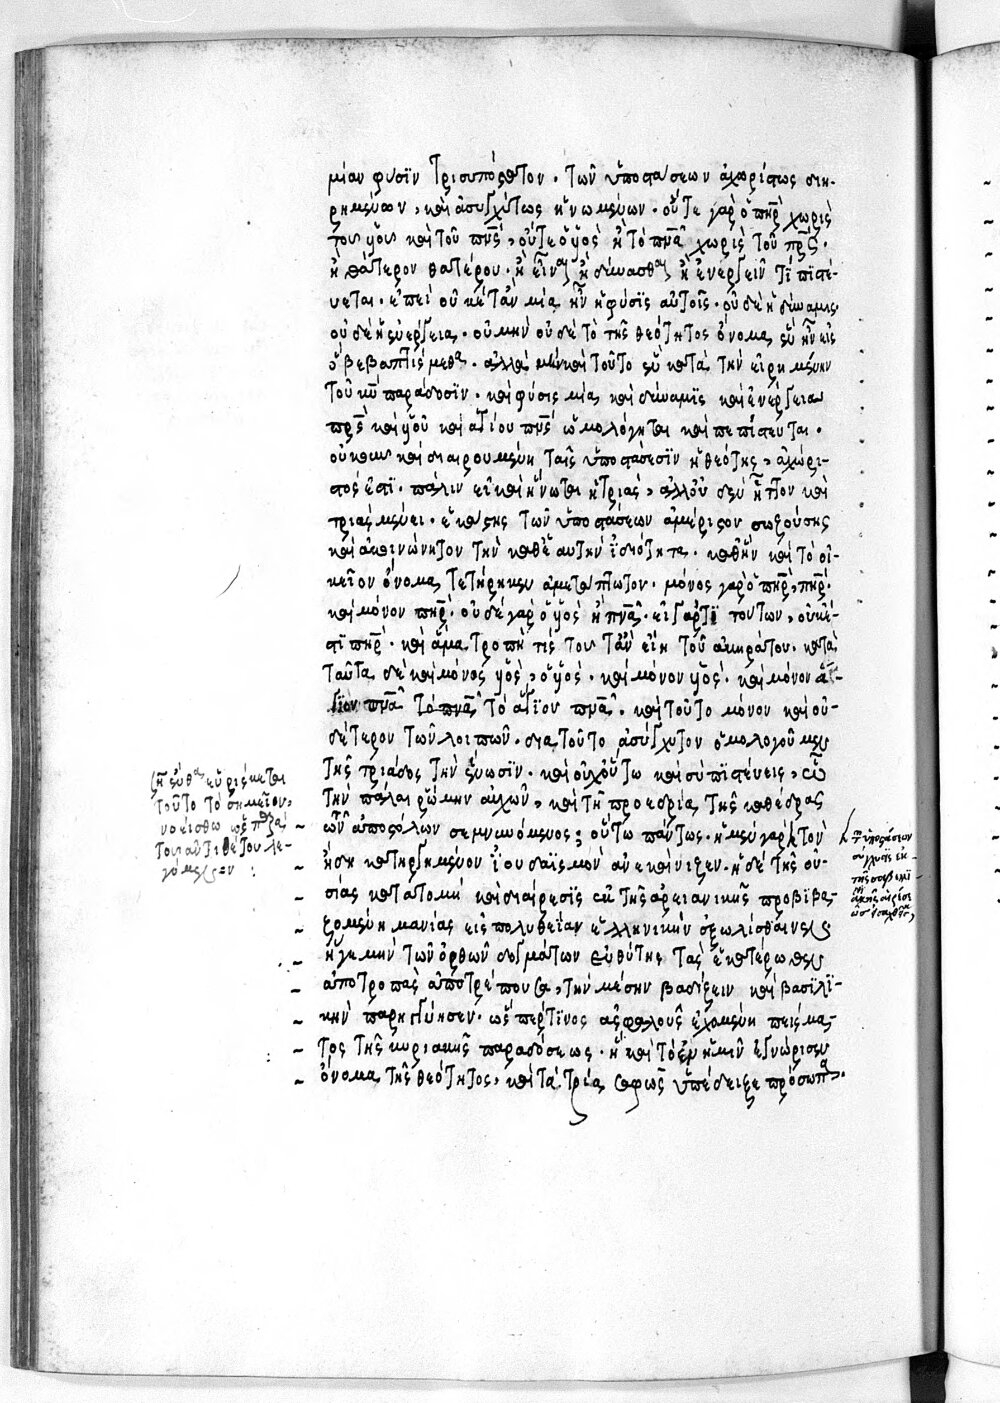 μίαν φύσϊν τρισυπόστατον· τῶν ὑποστάσεων ἀχωρίστως διῃ-
ρημένων, καὶ ἀσυγχύτως ἡνωμένων· οὔτε γὰρ ὁ πηρ χωρὶς
του υἱου καὶ τοῦ πνς, οὔτε ὁ υἱὸς ἢ τὸ πνα χωρὶς τοῦ πρς·
ἢ θάτερον θατέρου· ἢ εἶναι ἢ δύνασθαι ἢ ἐνεργεῖν τί πιστέ-
υεται· ἐπεὶ οὐκέτ' ἂν μία ἦν ἡ φύσϊς αὐτοῖς· οὐδὲ ἡ δύναμις·
οὐδὲ ἡ ἐνέργεια· οὐ μὴν οὐδὲ τὸ τῆς θεότητος ὄνομα, ἓν ἦν εἰς
ὃ βεβαπτίσμεθα· ἀλλὰ μὴν καὶ τοῦτο ἓν κατὰ τὴν εἰρημένην
τοῦ κυ παράδοσϊν· καὶ φύσις μία, καὶ δύναμϊς καὶ ἐνέργεια
πρς καὶ υἱοῦ καὶ ἁγίου πνς ὡμολόγηται καὶ πεπίστευται·
οὐκοῦν καὶ διαιρουμένη ταῖς ὑποστάσεσϊν ἡ θεότης, ἀχώρι-
στος ἐστί· πάλιν εἰ καὶ ἥνωται ἡ τριὰς, ἀλλ' οὐδὲν ἧττον καὶ
τριὰς μένει· ἑκάστης τῶν ὑποστάσεων ἀμέριστον σωζούσης
καὶ ἀκοινώνητον τὴν καθ' ἑαυτὴν ἰδιότητα· καθ' ἣν καὶ τὸ οἰ-
κεῖον ὄνομα, τετήρηκεν ἀμετάπτωτον· μόνος γὰρ ὁ πηρ, πηρ·
καὶ μόνον πηρ· οὐδὲ γὰρ ὁ υἱὸς ἢ πνα· εἰ γάρ τι τούτων, οὐκέ-
τι πηρ· καὶ ἅμα τροπή τις τοῦτ' ἂν εἴη τοῦ ἀκηράτου· κατὰ
ταῦτα δὲ καὶ μόνος υἱὸς, ὁ υἱὸς· καὶ μόνον υἱὸς· καὶ μόνον ἅ-
γϊον πνα τὸ πνα τὸ ἅγϊον πνα· καὶ τοῦτο μόνον καὶ οὐ-
δέτερον τῶν λοιπῶν· διατοῦτο ἀσύγχυτον ὁμολογοῦμεν
τῆς τριάδος τὴν ἕνωσϊν· καὶ οὐχ οὕτω καὶ σὺ πϊστεύεις, ὦ
τὴν πάλαι ῥώμην αὐχῶν, καὶ τῇ προεδρία τῆς καθέδρας
τῶν ἀποστόλων σεμνυνόμενος; οὕτω πάντως· ἡ μὲν γὰρ τὸν
ἤδη κατηργημένον ἰουδαϊσμὸν ἀνεκαίνιζεν· ἡ δὲ τῆς οὐ-
σίας κατατομὴ καὶ διαίρεσϊς ἐκ τῆς ἀρειανικῆς προβϊβα-
ζομένη μανίας εἰς πολυθεΐαν ἑλληνικὴν ἐξωλίσθαινεν
ἥ γε μὴν τῶν ὀρθῶν δογμάτων εὐθύτης τὰς ἑκατέρωθεν
ἀποτροπὰς ἀποτρέπουσα, τὴν μέσην βαδίζειν καὶ βασϊλϊ-
κὴν παρηγγύησεν· ὥσπερ τϊνος ἀσφαλοῦς ἐχομένη πείσμα-
τος τῆς κυριακῆς παραδόσεως· ἣ καὶ τὸ ἓν ἡμῖν ἐγνώρισεν
ὄνομα τῆς θεότητος, καὶ τὰ τρία σαφῶς ὑπέδειξε πρόσωπα·
ἔνθα εὑρίσκεται
τοῦτο τὸ σημεῖον,
νοείσθω ὡς
του ἀντιθέτου λε-
γόμενον :
ὑποστάσεων
σύγχυσις ἐκ
τῆς σαβελλι-
ακῆς αἱρέσε
ως